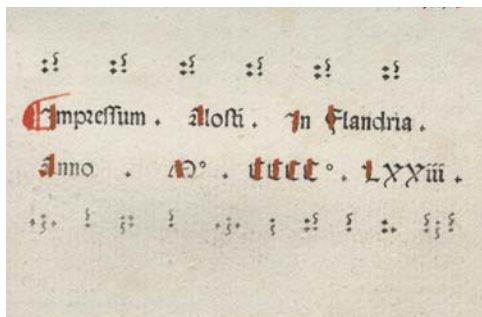 Impressum . Alosti . In Flandria .
Anno . M° . CCCC° . LXXiii .